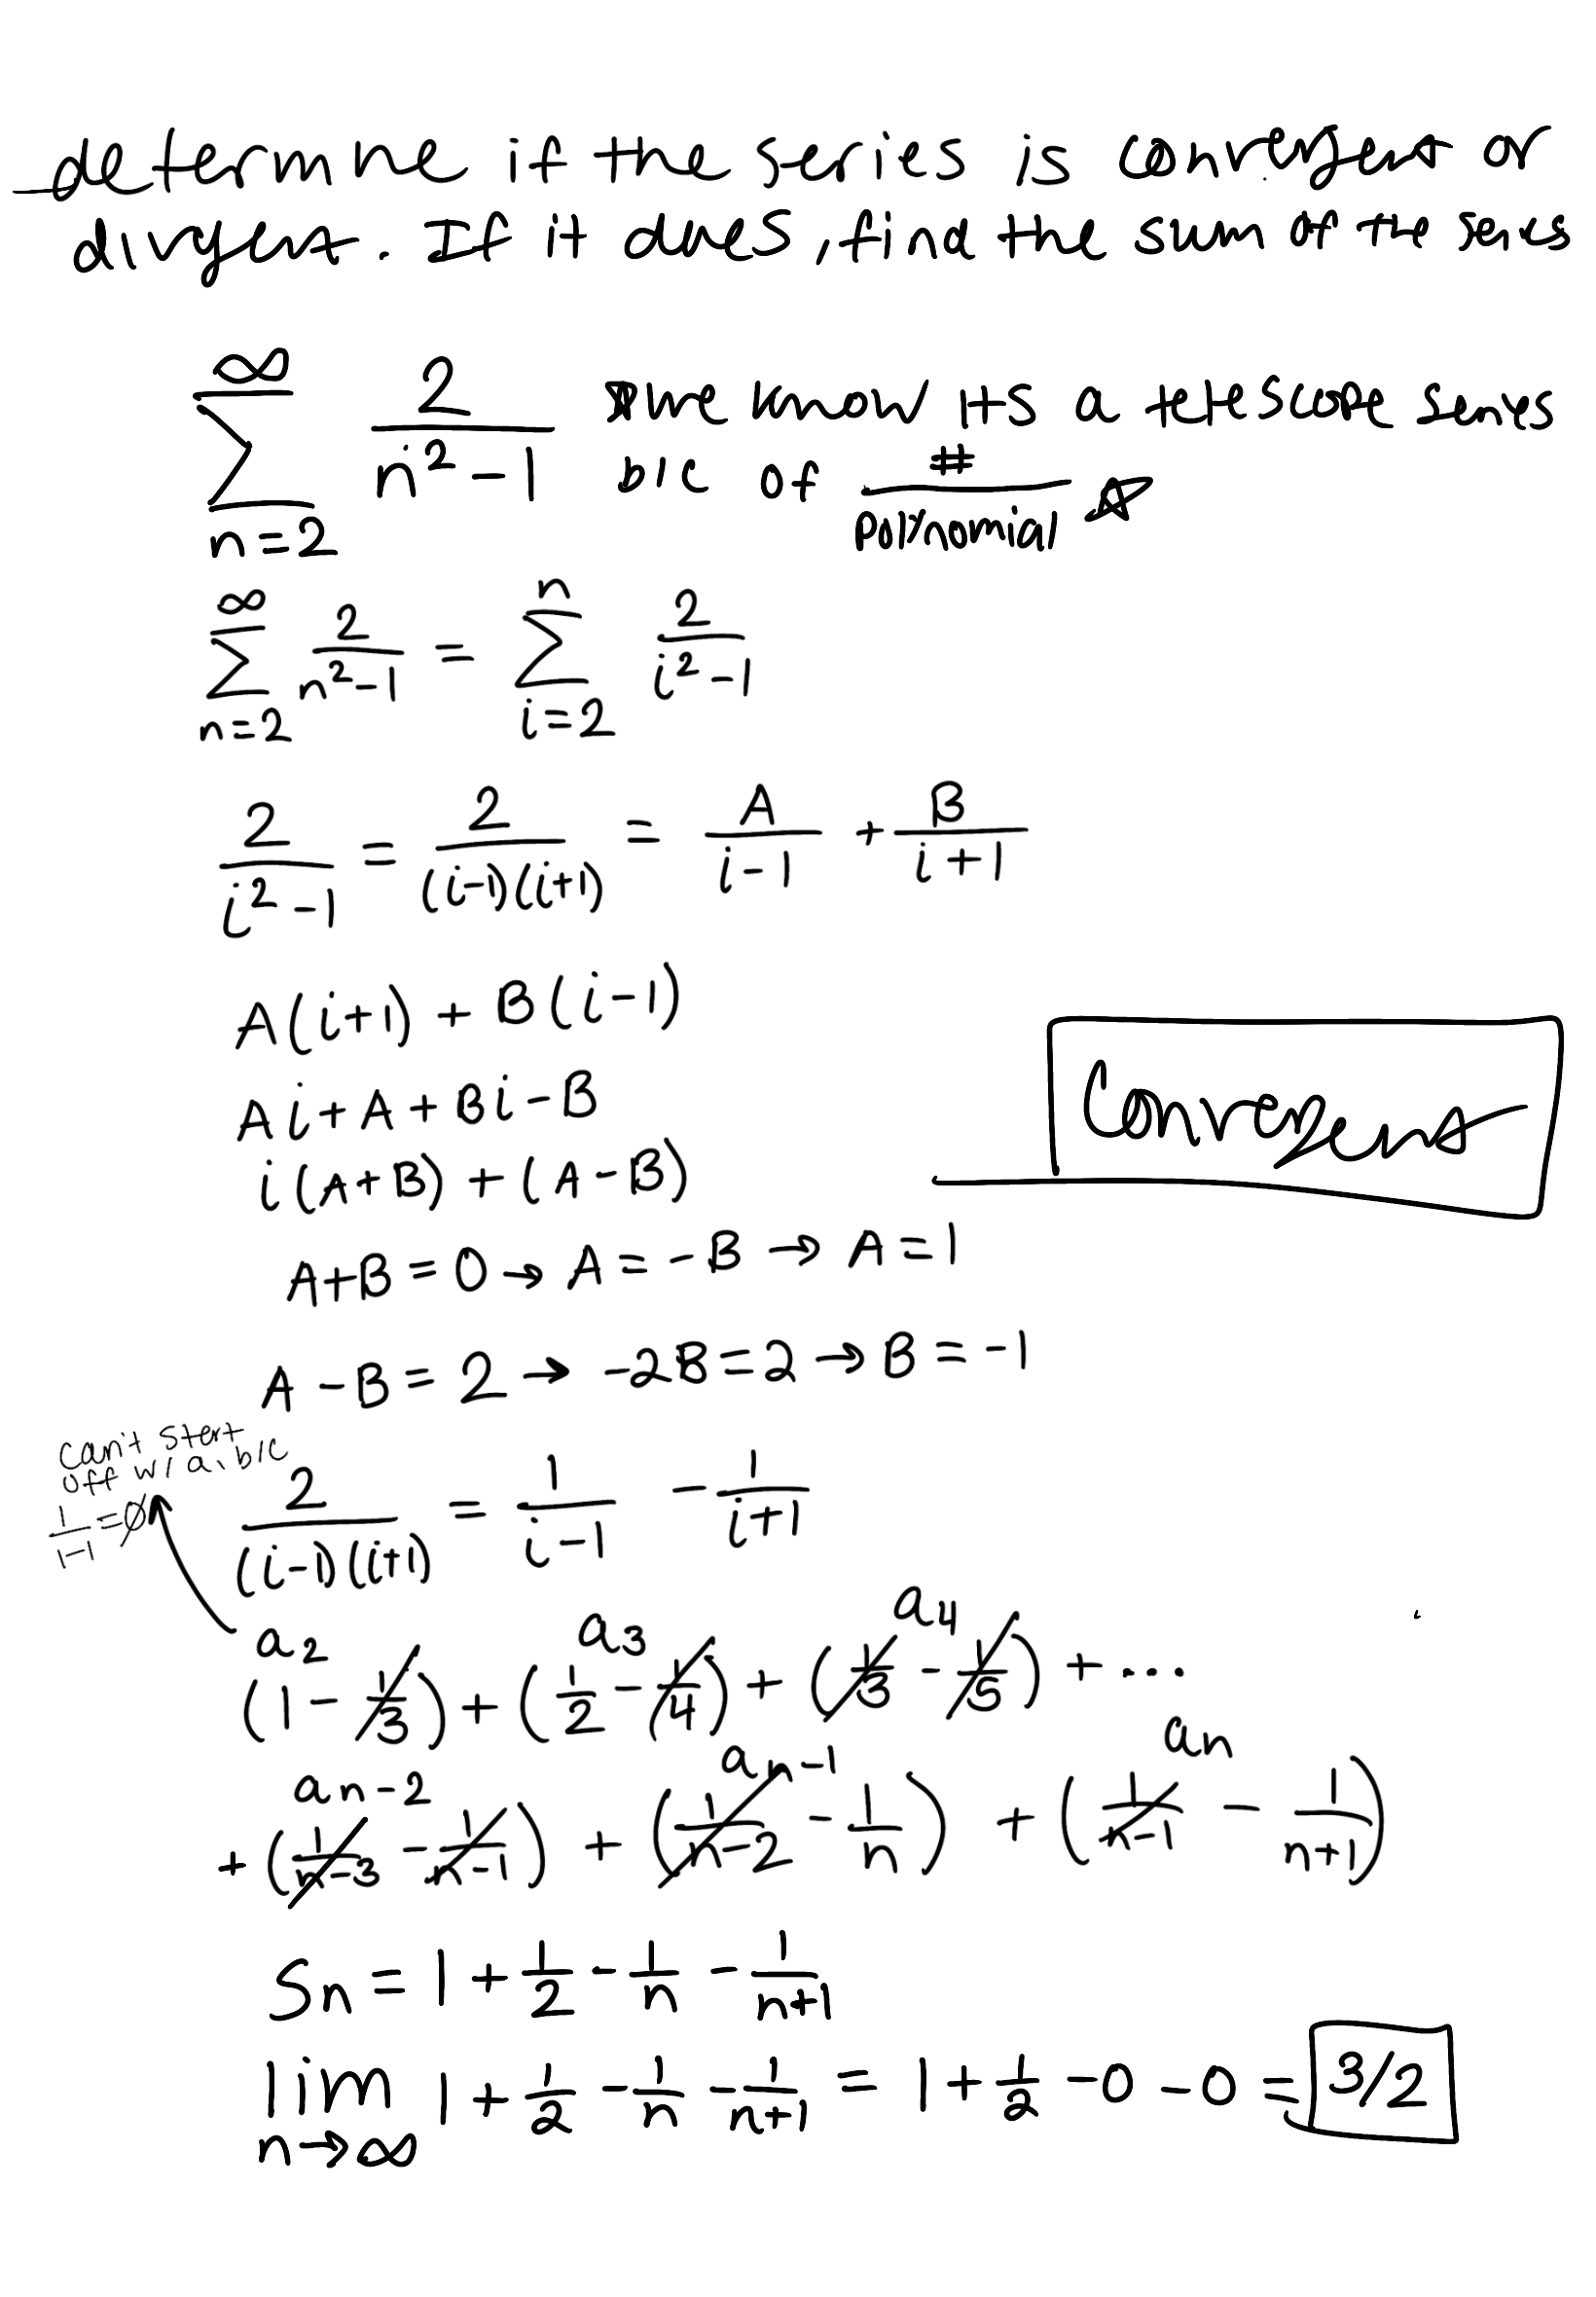 determine if the series is convergent or
divergent. If it does, find the sum of the series
∞
∑ 2/(n²-1) ☆we know its a telescope series
n=2 b/c of #/polynomial ☆
∞ n
∑ 2/(n²-1) = ∑ 2/(i²-1)
n=2 i=2
2/(i²-1) = 2/((i-1)(i+1)) = A/(i-1) + B/(i+1)
A(i+1) + B(i-1)
Ai+A+Bi-B
Convergent
i(A+B)+(A-B)
A+B=0→A=-B→A=1
A-B=2→-2B=2→B=-1
can't start
off w/ a₁ b/c
1/(1-1)=∅
2/((i-1)(i+1)) = 1/(i-1) - 1/(i+1)
a₂ a₃ a₄
(1-1/3)+(1/2-1/4)+(1/3-1/5)+...
an-2 an-1 an
+(1/(n-3)-1/(n-1))+(1/(n-2)-1/n)+(1/(n-1)-1/(n+1))
Sn=1+1/2-1/n-1/(n+1)
lim 1+1/2-1/n-1/(n+1)=1+1/2-0-0=3/2
n→∞